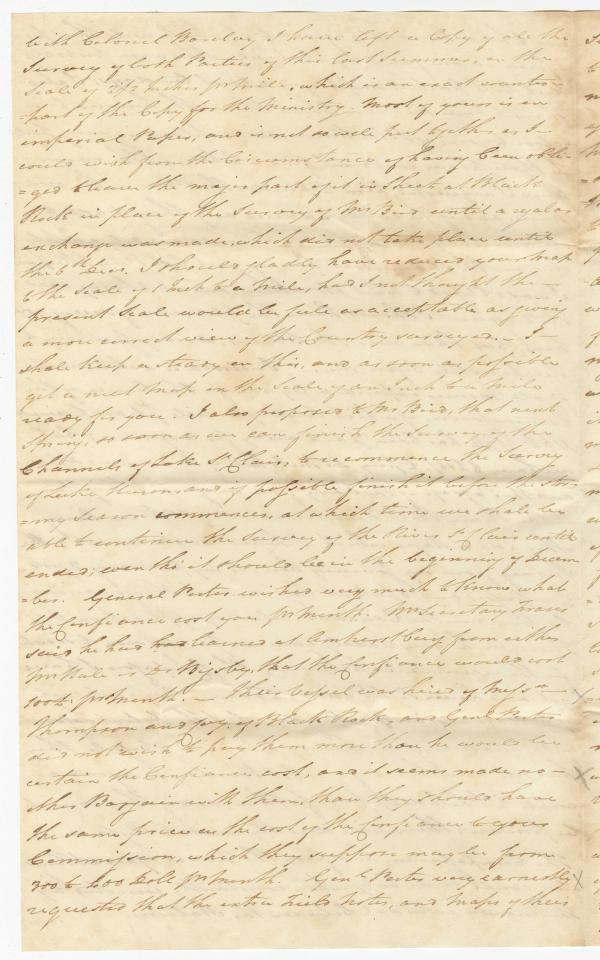 with Colonel Barclay I have left a Copy of all the
Survey of both Parties of this last Summer, on the
Scale of 2 1/2 Inches pr Mile, which is an exact counter-
-part of the Copy for the Ministry. Most of yours is on
imperial Paper, and is not so well put together as I
could wish from the Circumstance of having been obli-
=ged to leave the major part of it in Sheets at Black
Rock in place of the Survey of Mr Bird until a regular
exchange was made, which did not take place until
the 6th Decr. I should gladly have reduced your Map
to the Scale of 1 Inch to a Mile, had I not thought the
present Scale would be full as acceptable as giving
a more correct view of the Country surveyed. – I
shall keep a steady on this, and as soon as possible
get a neat Map on the Scale of an Inch to a Mile
ready for you. I also proposed to Mr Bird, that next
Spring, as soon as we can finish the Survey of the
Channels of Lake St Clair, to recommence the Survey
of Lake Huron, and if possible finish it before the stor-
=my Season commences, at which time we shall be
able to continue the Survey of the River St Clair until
ended; even tho' it should be in the beginning of Decem
=ber. General Porter wished very much to know what
the Confiance cost you pr Month. Mr Secretary Fraser
said he had learned at Amherstburg from either
Mr Hale or Dr Bigsby, that the Confiance would cost
100£. pr Month. – Their Vessel was hired of Messrs
Thompson and Joy, of Black Rock, and Genl Porter
did not wish to pay them more than he would as-
certain the Confiance cost, and it seems made no
other Bargain with them, than they should have
the same price as the cost of the Confiance to your
Commission, which they suppose may be from
300 to 400 Doll pr Month. Genl Porter very earnestly
requested that the extra Field Notes, and Maps of their